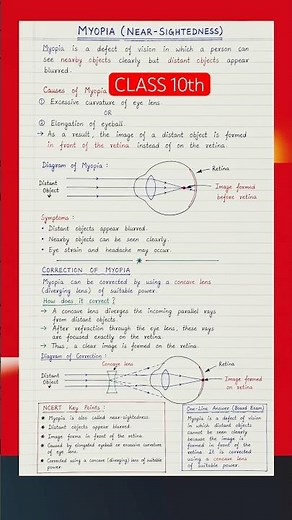 MYOPIA (NEAR-SIGHTEDNESS)
Myopia is a defect of vision in which a person can
see nearby objects clearly but distant objects appear
blurred.
CLASS 10th
Causes of Myopia
① Excessive curvature of eye lens
OR
② Elongation of eyeball
→ As a result, the image of a distant object is formed
in front of the retina instead of on the retina.
Diagram of Myopia:
Retina
Distant
Object
Image formed
before retina
Symptoms:
• Distant objects appear blurred.
• Nearby objects can be seen clearly.
• Eye strain and headache may occur.
CORRECTION OF MYOPIA
Myopia can be corrected by using a concave lens
(diverging lens) of suitable power.
How does it correct?
→ A concave lens diverges the incoming parallel rays
from distant objects.
→ After refraction through the eye lens, these rays
are focused exactly on the retina.
→ Thus, a clear image is formed on the retina.
Diagram of Correction:
Concave lens
Retina
Distant
Object
Image formed
on retina
NCERT Key Points:
• Myopia is also called near-sightedness.
• Distant objects appear blurred.
• Image forms in front of the retina.
• Caused by elongated eyeball or excessive curvature
of eye lens.
• Corrected using a concave (diverging) lens of suitable
power.
One-Line Answer (Board Exam)
Myopia is a defect of vision
in which distant objects
cannot be seen clearly
because the image is
formed in front of the
retina. It is corrected
using a concave lens
of suitable power.